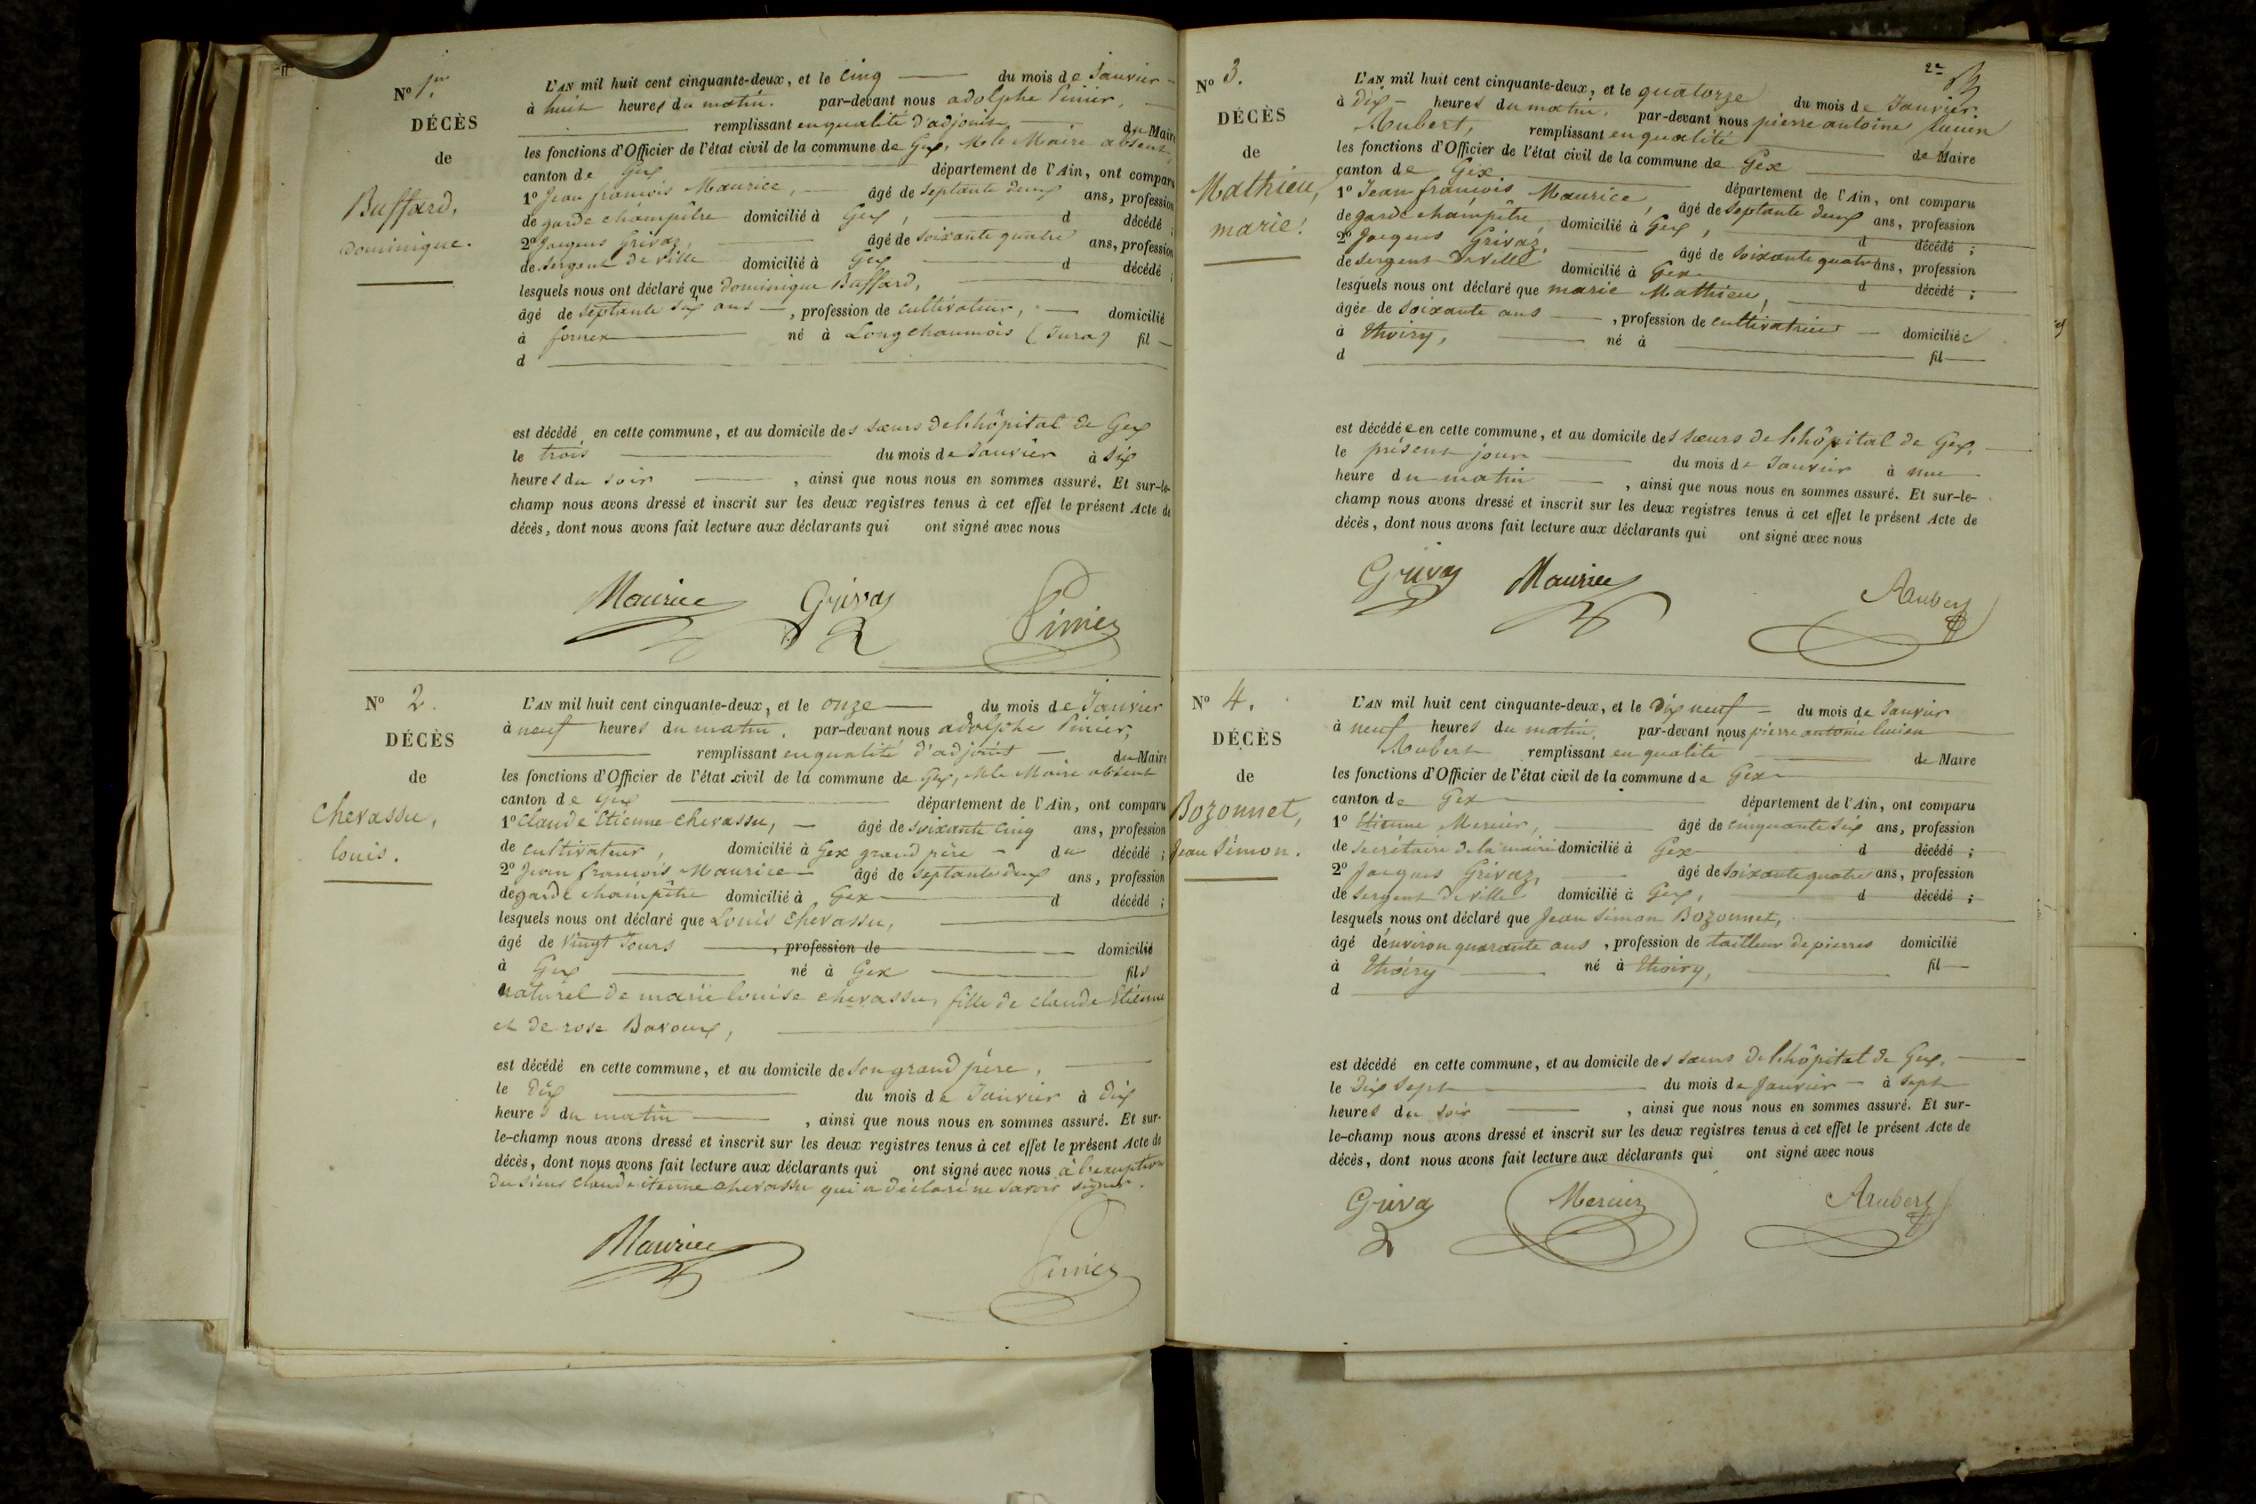 Nº 1er
DÉCÈS
de
Buffard,
dominique.
L'AN mil huit cent cinquante-deux, et le cinq du mois de Janvier
à huit heures du matin. par-devant nous adolphe Pinier,
remplissant en qualité d'adjoint du Maire
les fonctions d'Officier de l'état civil de la commune de Gex, Mr le Maire absent,
canton de Gex département de l'Ain, ont comparu
1º Jean françois Maurice, âgé de septante deux ans, profession
de garde champêtre domicilié à Gex, d décédé ;
2º Jacques Grivaz, âgé de soixante quatre ans, profession
de sergent de ville domicilié à Gex d décédé ;
lesquels nous ont déclaré que dominique Buffard,
âgé de septante six ans, profession de cultivateur, domicilié
à fornex né à Longchaumois (Jura) fil
d
est décédé en cette commune, et au domicile des sœurs de l'hôpital de Gex
le trois du mois de Janvier à six
heures du soir, ainsi que nous nous en sommes assuré. Et sur-le-
champ nous avons dressé et inscrit sur les deux registres tenus à cet effet le présent Acte de
décès, dont nous avons fait lecture aux déclarants qui ont signé avec nous
Maurice Grivaz Pinier
Nº 2.
DÉCÈS
de
Chevassu,
louis.
L'AN mil huit cent cinquante-deux, et le onze du mois de Janvier
à neuf heures du matin. par-devant nous adolphe Pinier,
remplissant en qualité d'adjoint du Maire
les fonctions d'Officier de l'état civil de la commune de Gex, Mr le Maire absent
canton de Gex département de l'Ain, ont comparu
1º Claude Etienne Chevassu, âgé de soixante cinq ans, profession
de cultivateur, domicilié à Gex grand père du décédé ;
2º Jean françois Maurice âgé de septante deux ans, profession
de garde champêtre domicilié à Gex d décédé ;
lesquels nous ont déclaré que Louis Chevassu,
âgé de vingt Jours, profession de domicilié
à Gex né à Gex fils
naturel de marie louise chevassu, fille de claude Etienne
et de rose Bavoux,
est décédé en cette commune, et au domicile de son grand père,
le dix du mois de Janvier à dix
heures du matin, ainsi que nous nous en sommes assuré. Et sur-
le-champ nous avons dressé et inscrit sur les deux registres tenus à cet effet le présent Acte de
décès, dont nous avons fait lecture aux déclarants qui ont signé avec nous à l'exception
du sieur Claude etienne chevassu qui a déclaré ne savoir signer.
Maurice Pinier
2e
Nº 3.
DÉCÈS
de
Mathieu,
marie.
L'AN mil huit cent cinquante-deux, et le quatorze du mois de Janvier.
à dix heures du matin. par-devant nous pierre antoine lucien
Aubert, remplissant en qualité de Maire
les fonctions d'Officier de l'état civil de la commune de Gex
canton de Gex département de l'Ain, ont comparu
1º Jean françois Maurice, âgé de septante deux ans, profession
de garde champêtre, domicilié à Gex, d décédé ;
2º Jacques Grivaz, âgé de soixante quatre ans, profession
de sergent de ville domicilié à Gex d décédé ;
lesquels nous ont déclaré que marie Mathieu,
âgée de soixante ans, profession de cultivatrice domiciliée
à thoiry, né à fil
d
est décédée en cette commune, et au domicile des sœurs de l'hôpital de Gex,
le présent jour du mois de Janvier à une
heure du matin, ainsi que nous nous en sommes assuré. Et sur-le-
champ nous avons dressé et inscrit sur les deux registres tenus à cet effet le présent Acte de
décès, dont nous avons fait lecture aux déclarants qui ont signé avec nous
Grivaz Maurice Aubert
Nº 4.
DÉCÈS
de
Bozonnet,
Jean Simon.
L'AN mil huit cent cinquante-deux, et le dix neuf du mois de Janvier
à neuf heures du matin. par-devant nous pierre antoine lucien
Aubert remplissant en qualité de Maire
les fonctions d'Officier de l'état civil de la commune de Gex
canton de Gex département de l'Ain, ont comparu
1º Etienne Mercier, âgé de cinquante six ans, profession
de secrétaire de la mairie domicilié à Gex d décédé ;
2º Jacques Grivaz, âgé de soixante quatre ans, profession
de sergent de ville domicilié à Gex, d décédé ;
lesquels nous ont déclaré que Jean Simon Bozonnet,
âgé d'environ quarante ans, profession de tailleur de pierres domicilié
à thoiry né à thoiry, fil
d
est décédé en cette commune, et au domicile des sœurs de l'hôpital de Gex,
le dix sept du mois de Janvier à sept
heures du soir, ainsi que nous nous en sommes assuré. Et sur-
le-champ nous avons dressé et inscrit sur les deux registres tenus à cet effet le présent Acte de
décès, dont nous avons fait lecture aux déclarants qui ont signé avec nous
Grivaz Mercier Aubert